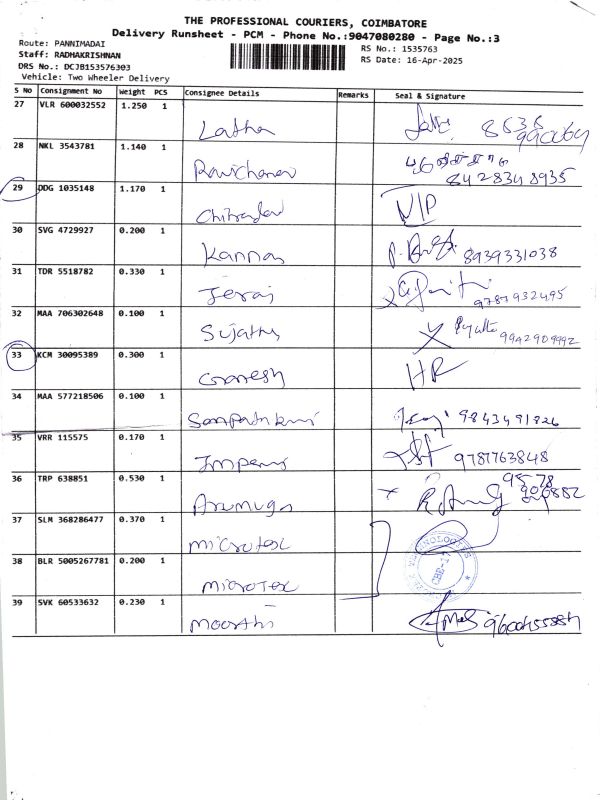 THE PROFESSIONAL COURIERS, COIMBATORE
Delivery Runsheet - PCM - Phone No.:9047080280 - Page No.:3
Route: PANNIMADAI
RS No.: 1535763
Staff: RADHAKRISHNAN
RS Date: 16-Apr-2025
DRS No.: DCJB153576303
Vehicle: Two Wheeler Delivery
S No Consignment No Weight PCS Consignee Details Remarks Seal & Signature
27 VLR 600032552 1.250 1 Latha
28 NKL 3543781 1.140 1 Ravichandran 8428348935
29 DDG 1035148 1.170 1 N/P
30 SVG 4729927 0.200 1 Kannan 8939331038
31 TDR 5518782 0.330 1 Jeraj 9787932495
32 MAA 706302648 0.100 1 Sujatha 9942909992
33 KCM 30095389 0.300 1 Ganesh HR
34 MAA 577218506 0.100 1 9843491826
35 VRR 115575 0.170 1 9787763848
36 TRP 638851 0.530 1 Arumuga
37 SLM 368286477 0.370 1 Microtex
38 BLR 5005267781 0.200 1 Microtex
39 SVK 60533632 0.230 1 Moorthi